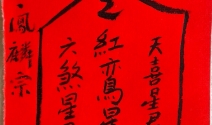 天喜星君
紅鵉星
六煞星
鳳麟宗